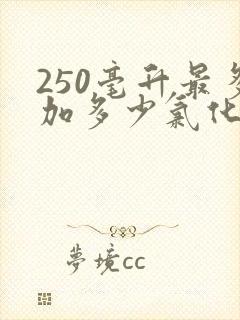 250毫升最多
加多少氯化
夢境cc